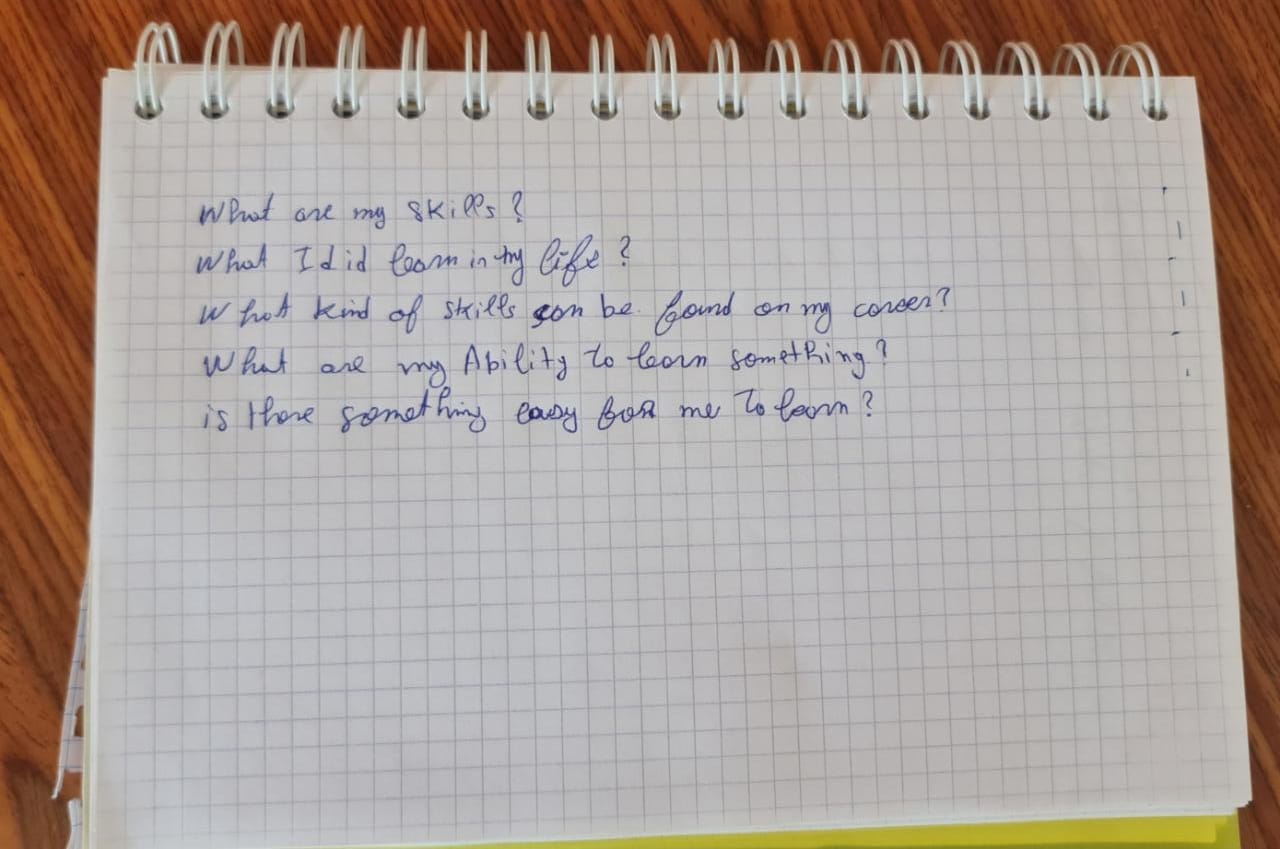 What are my skills?
What I did learn in my life?
What kind of skills can be found on my career?
What are my Ability to learn something?
is there something easy for me to learn?